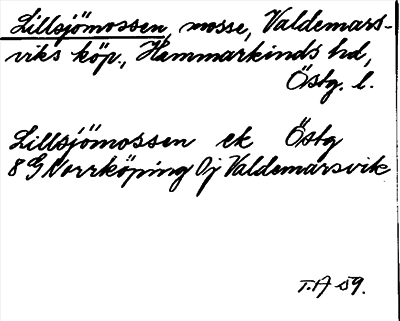 Lillsjömossen, mosse, Valdemars-
viks köp., Hammarkinds hd,
Östg. l.
Lillsjömossen ek Östg
8 G Norrköping 0j Valdemarsvik
T.A 59.